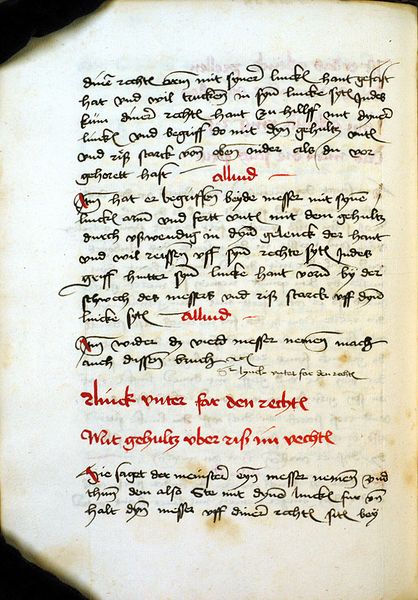 diner rechten Wenn mit syner lincken hant gefast
hat vnd wil trucken in syn lincke syten Indes
kum diner rechten hant zu hillff mit dyner
lincken vnd begriff do mit dyn gehultz vnten
vnd riß starck von oben nider als du vor
gehortt hast Aliud
Item hat er begriffen beyde messer mit syne
lincken arm vnd fertt vnten mit dem gehultz
durch vswendung in dyn gelenck der hant
vnd wil reissen vff syn rechte syten Indes
griff hinter syn lincke hant vorn by der
schwech des messers vnd riß starck vff dyn
lincke syten Aliud
Item wider das viertt messer nemen mach
auch dissen bruch
lynck unter far den rechten
Linck vnter far den rechten
Mit gehultz vber riß im vechten
Hie saget der meinster eyn messer nemen vnd
thun dem also Ste mit dynem lincken fur vnd
halt dyn messer vff diner rechten siten bey